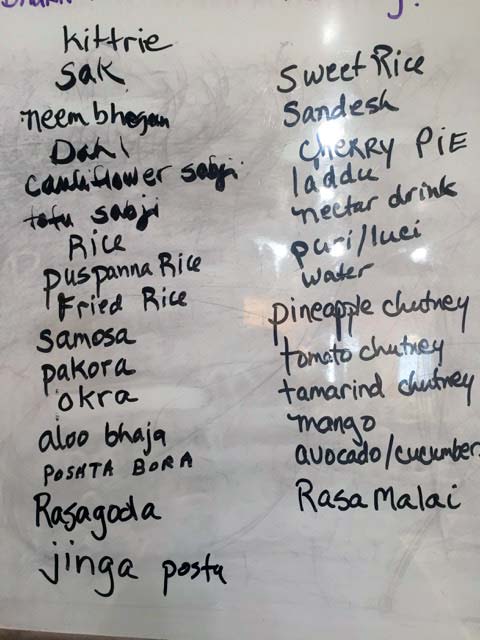 kittrie
sak
neem bhegan
Dahl
cauliflower sabji
tofu sabji
Rice
puspanna Rice
Fried Rice
samosa
pakora
okra
aloo bhaja
POSHTA BORA
Rasagoda
jinga posta
sweet Rice
Sandesh
CHERRY PiE
laddu
nectar drink
puri/luci
water
pineapple chutney
tomato chutney
tamarind chutney
mango
avocado/cucumber
Rasa Malai